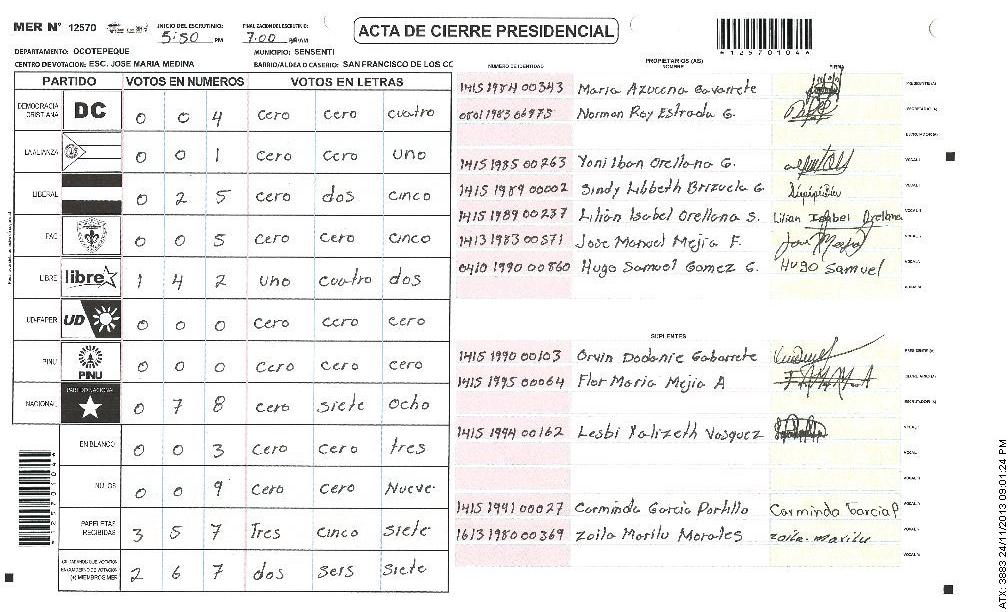 MER N° 12570 INICIO DEL ESCRUTINIO: 5:50 PM FINALIZACION DEL ESCRUTINIO: 7:00
ACTA DE CIERRE PRESIDENCIAL
*12570104*
DEPARTAMENTO: OCOTEPEQUE MUNICIPIO: SENSENTI
CENTRO DE VOTACION: ESC. JOSE MARIA MEDINA BARRIO/ALDEA O CASERIO: SAN FRANCISCO DE LOS CC
PARTIDO VOTOS EN NUMEROS VOTOS EN LETRAS
DEMOCRACIA CRISTIANA DC 0 0 4 cero cero cuatro
LA ALIANZA 0 0 1 cero cero uno
LIBERAL 0 2 5 cero dos cinco
FAC 0 0 5 cero cero cinco
LIBRE libre 1 4 2 uno cuatro dos
UD-FAPER UD 0 0 0 cero cero cero
PINU PINU 0 0 0 cero cero cero
NACIONAL PARTIDO NACIONAL 0 7 8 cero siete ocho
EN BLANCO 0 0 3 cero cero tres
NULOS 0 0 9 cero cero Nueve
PAPELETAS RECIBIDAS 3 5 7 Tres cinco siete
2 6 7 dos seis siete
NUMERO DE IDENTIDAD PROPIETARIOS (AS) NOMBRE FIRMA
1415 1984 00343 Maria Azucena Gavarrete PRESIDENTE (A)
0801 1983 06975 Norman Roy Estrada G. SECRETARIO (A)
ESCRUTADOR (A)
1415 1985 00263 Yoni Iban Orellana G. VOCAL I
1415 1989 00002 Sindy Libbeth Brizuela G
1415 1989 00237 Lilian Isabel Orellana S. Lilian Isabel Orellana
1413 1983 00571 Jose Manuel Mejia F.
0410 1990 00860 Hugo Samuel Gomez G. Hugo Samuel
SUPLENTES
1415 1990 00103 Orvin Dodanie Gabarrete PRESIDENTE (A)
1415 1995 00064 Flor Maria Mejia A SECRETARIO (A)
ESCRUTADOR (A)
1415 1994 00162 Lesbi Yalizeth Vasquez
1415 1991 00027 Carminda Garcia Portillo Carminda Garcia P
1613 1980 00369 Zoila Marilu Morales zoila marilu
ATX: 3883 24/11/2013 09:01:24 PM